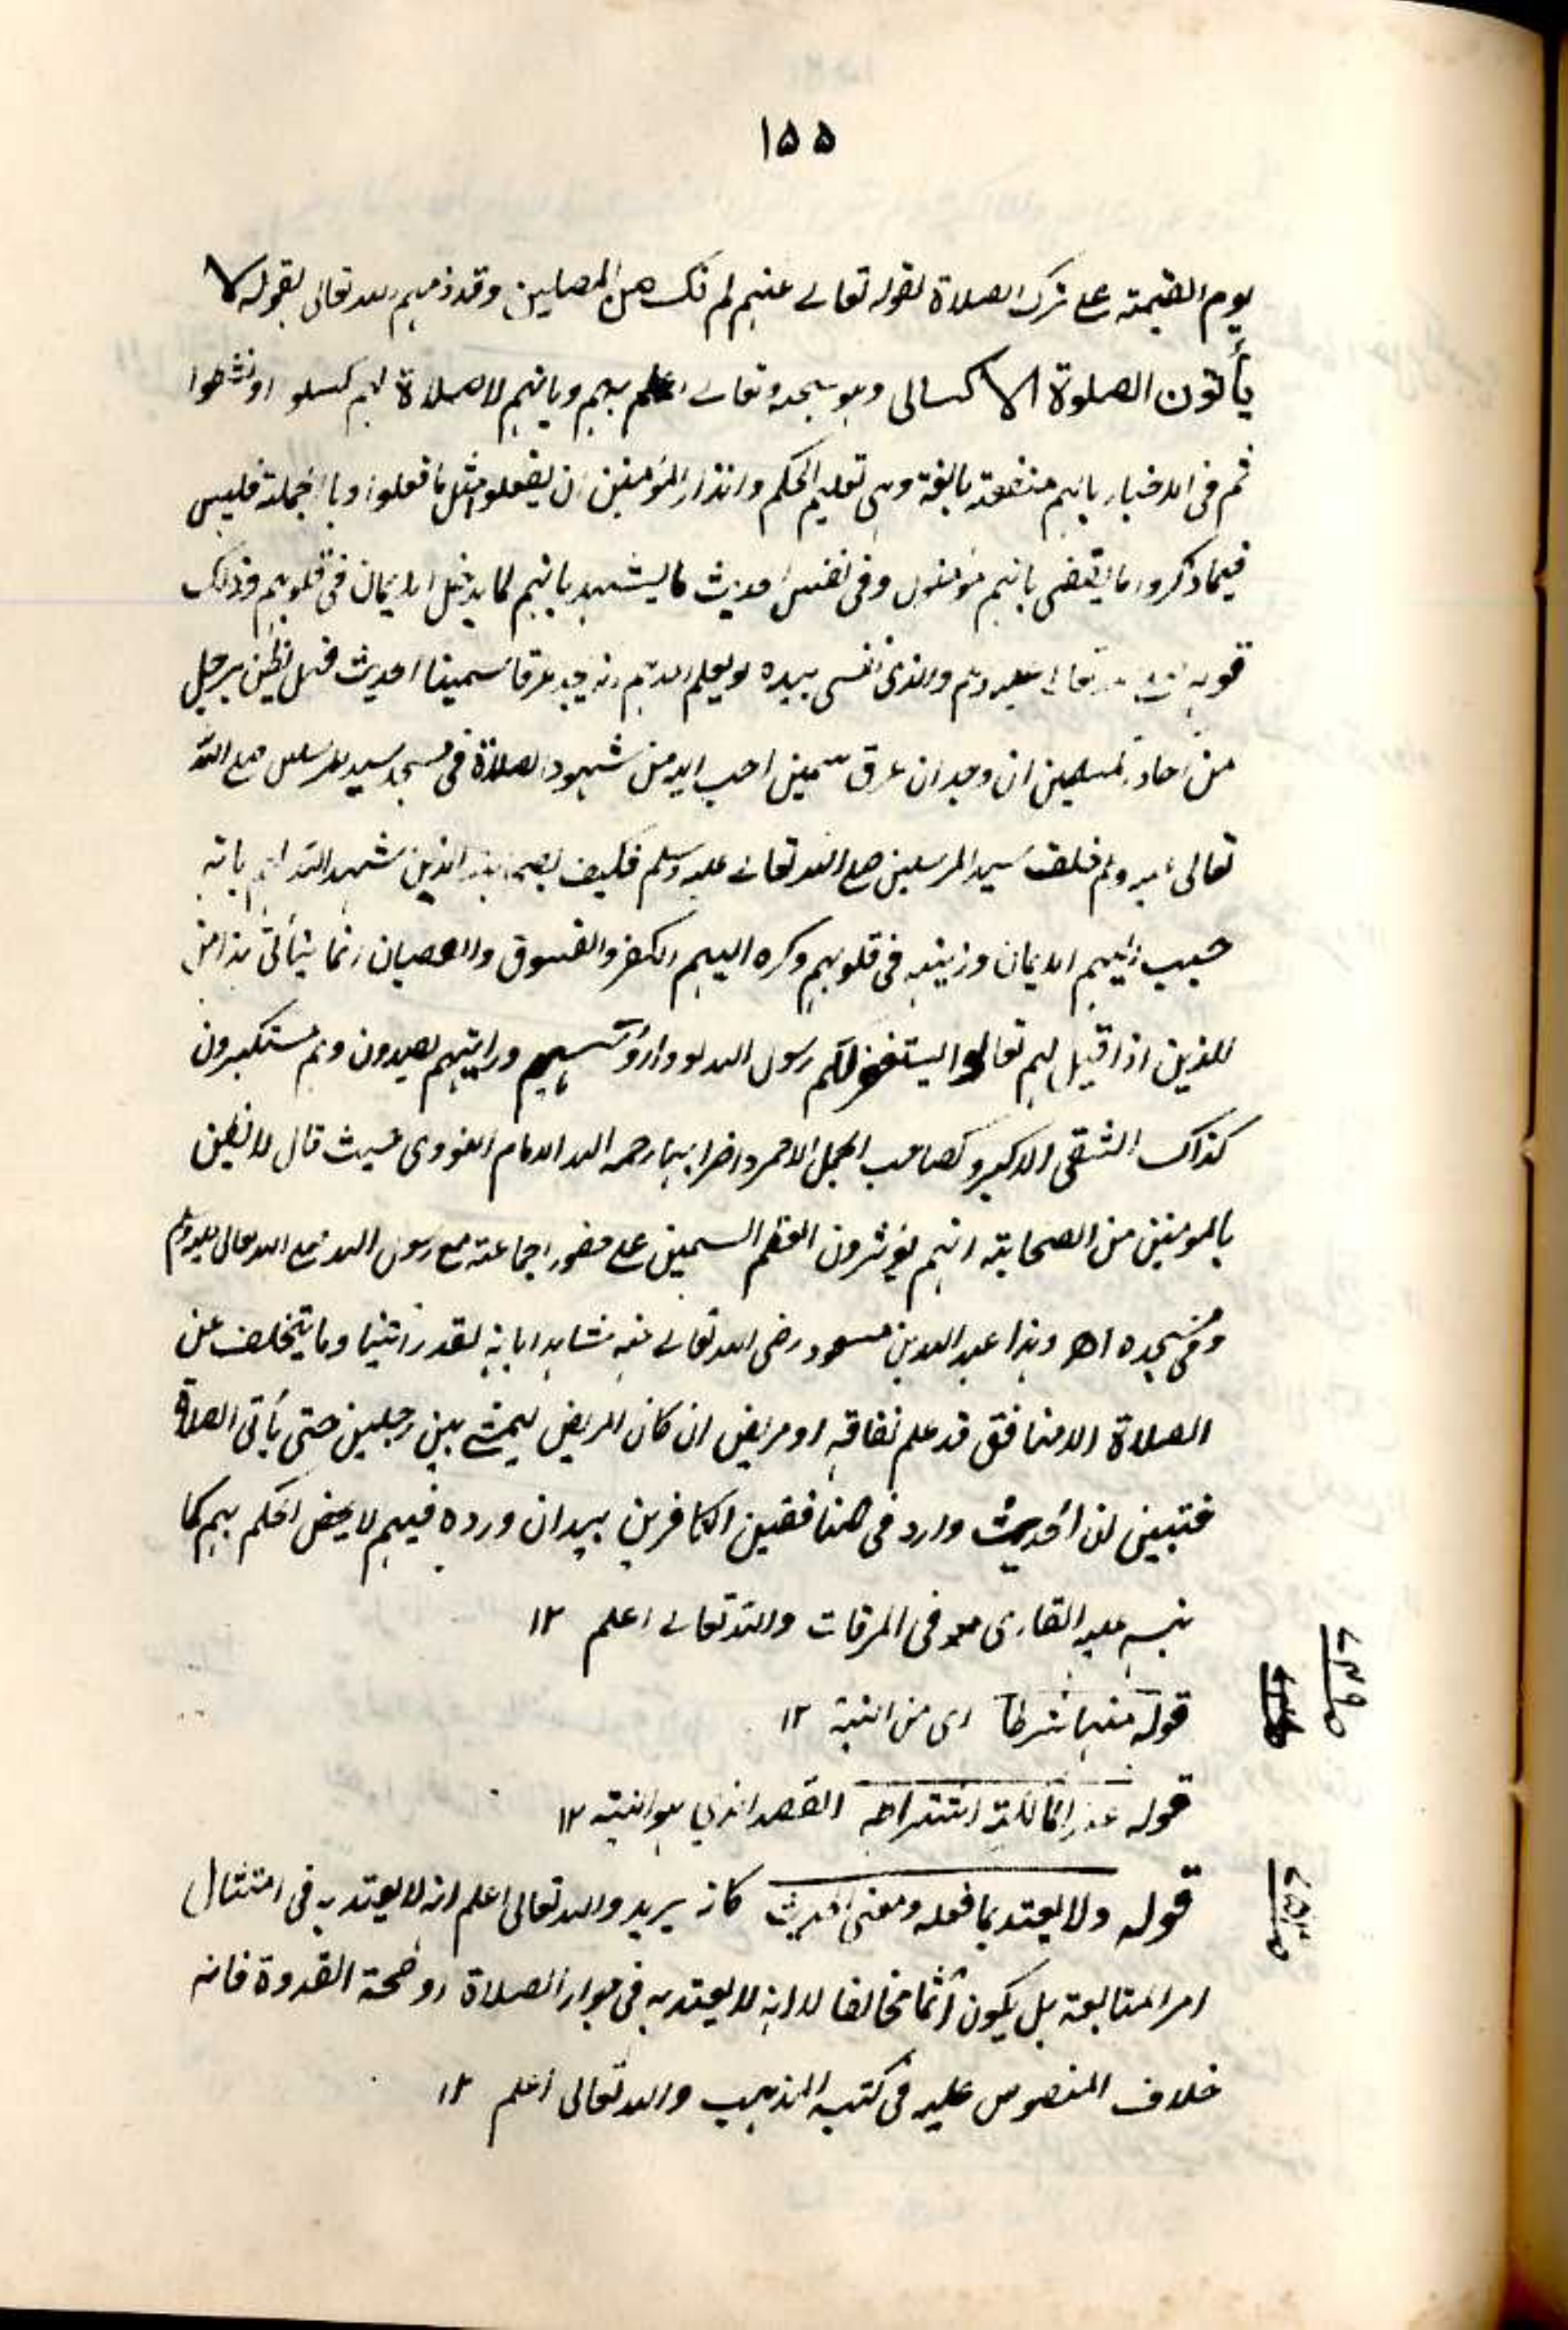 ١٥٥
يوم القيمة على ترك الصلاة لقوله تعالى عنهم لم نك من المصلين وقد ذمهم الله تعالى بقوله لا
يأتون الصلوة الا كسالى وهو سبحنه وتعالى اعلم بهم وبانهم لا صلاة لهم كسلو او نشطوا
ثم فى الاخبار بانهم منفعة بالغة وهى تعليم الحكم وانذار المؤمنين ان يفعلوا مثل ما فعلوا وبالجملة فليس
فيما ذكروا ما يقضى بانهم مؤمنون وفى نفس الحديث ما يشهد بانهم لما يدخل الايمان فى قلوبهم وذلك
قوله صلى الله تعالى عليه وسلم والذى نفسى بيده لو يعلم احدهم انه يجد عرقا سمينا الحديث فهل يظن برجل
من احاد المسلمين ان وجدان عرق سمين احب اليه من شهود الصلاة فى مسجد سيد المرسلين صلى الله
تعالى عليه وسلم خلف سيد المرسلين صلى الله تعالى عليه وسلم فكيف بصحابته الذين شهد الله لهم بانه
حبب اليهم الايمان وزينه فى قلوبهم وكره اليهم الكفر والفسوق والعصيان انما يتأتى هذا من
للذين اذا قيل لهم تعالوا يستغفر لكم رسول الله لووا رؤسهم ورايتهم يصدون وهم مستكبرون
كذاك الشقى الاكبر وكصاحب الجمل الاحمر واضرابهما رحم الله الامام النووى حيث قال لا يظن
بالمومنين من الصحابة انهم يؤثرون العظم السمين على حضور الجماعة مع رسول الله صلى الله تعالى عليه وسلم
وفى مسجده اھ وهذا عبد الله بن مسعود رضى الله تعالى عنه شاهدا بانه لقد رأيتنا وما يتخلف عن
الصلاة الا منافق قد علم نفاقه او مريض ان كان المريض ليمشى بين رجلين حتى يأتى الصلاة
فتبين ان الحديث وارد فى المنافقين الكافرين بيد ان وروده فيهم لا يخص الحكم بهم كما
نبه عليه القارى فى المرقات والله تعالى اعلم ١٢
قوله منها شرطا اى من النية ١٢
قوله عند المالكية اشتراط القصد الذى هو النية ١٢
قوله ولا يعتد بما فعله ومعنى الحديث كانه يريد والله تعالى اعلم انه لا يعتد به فى امتثال
امر المتابعة بل يكون اثما مخالفا لا انه لا يعتد به فى جواز الصلاة او صحة القدوة فانه
خلاف المنصوص عليه فى كتب المذهب والله تعالى اعلم ١٢